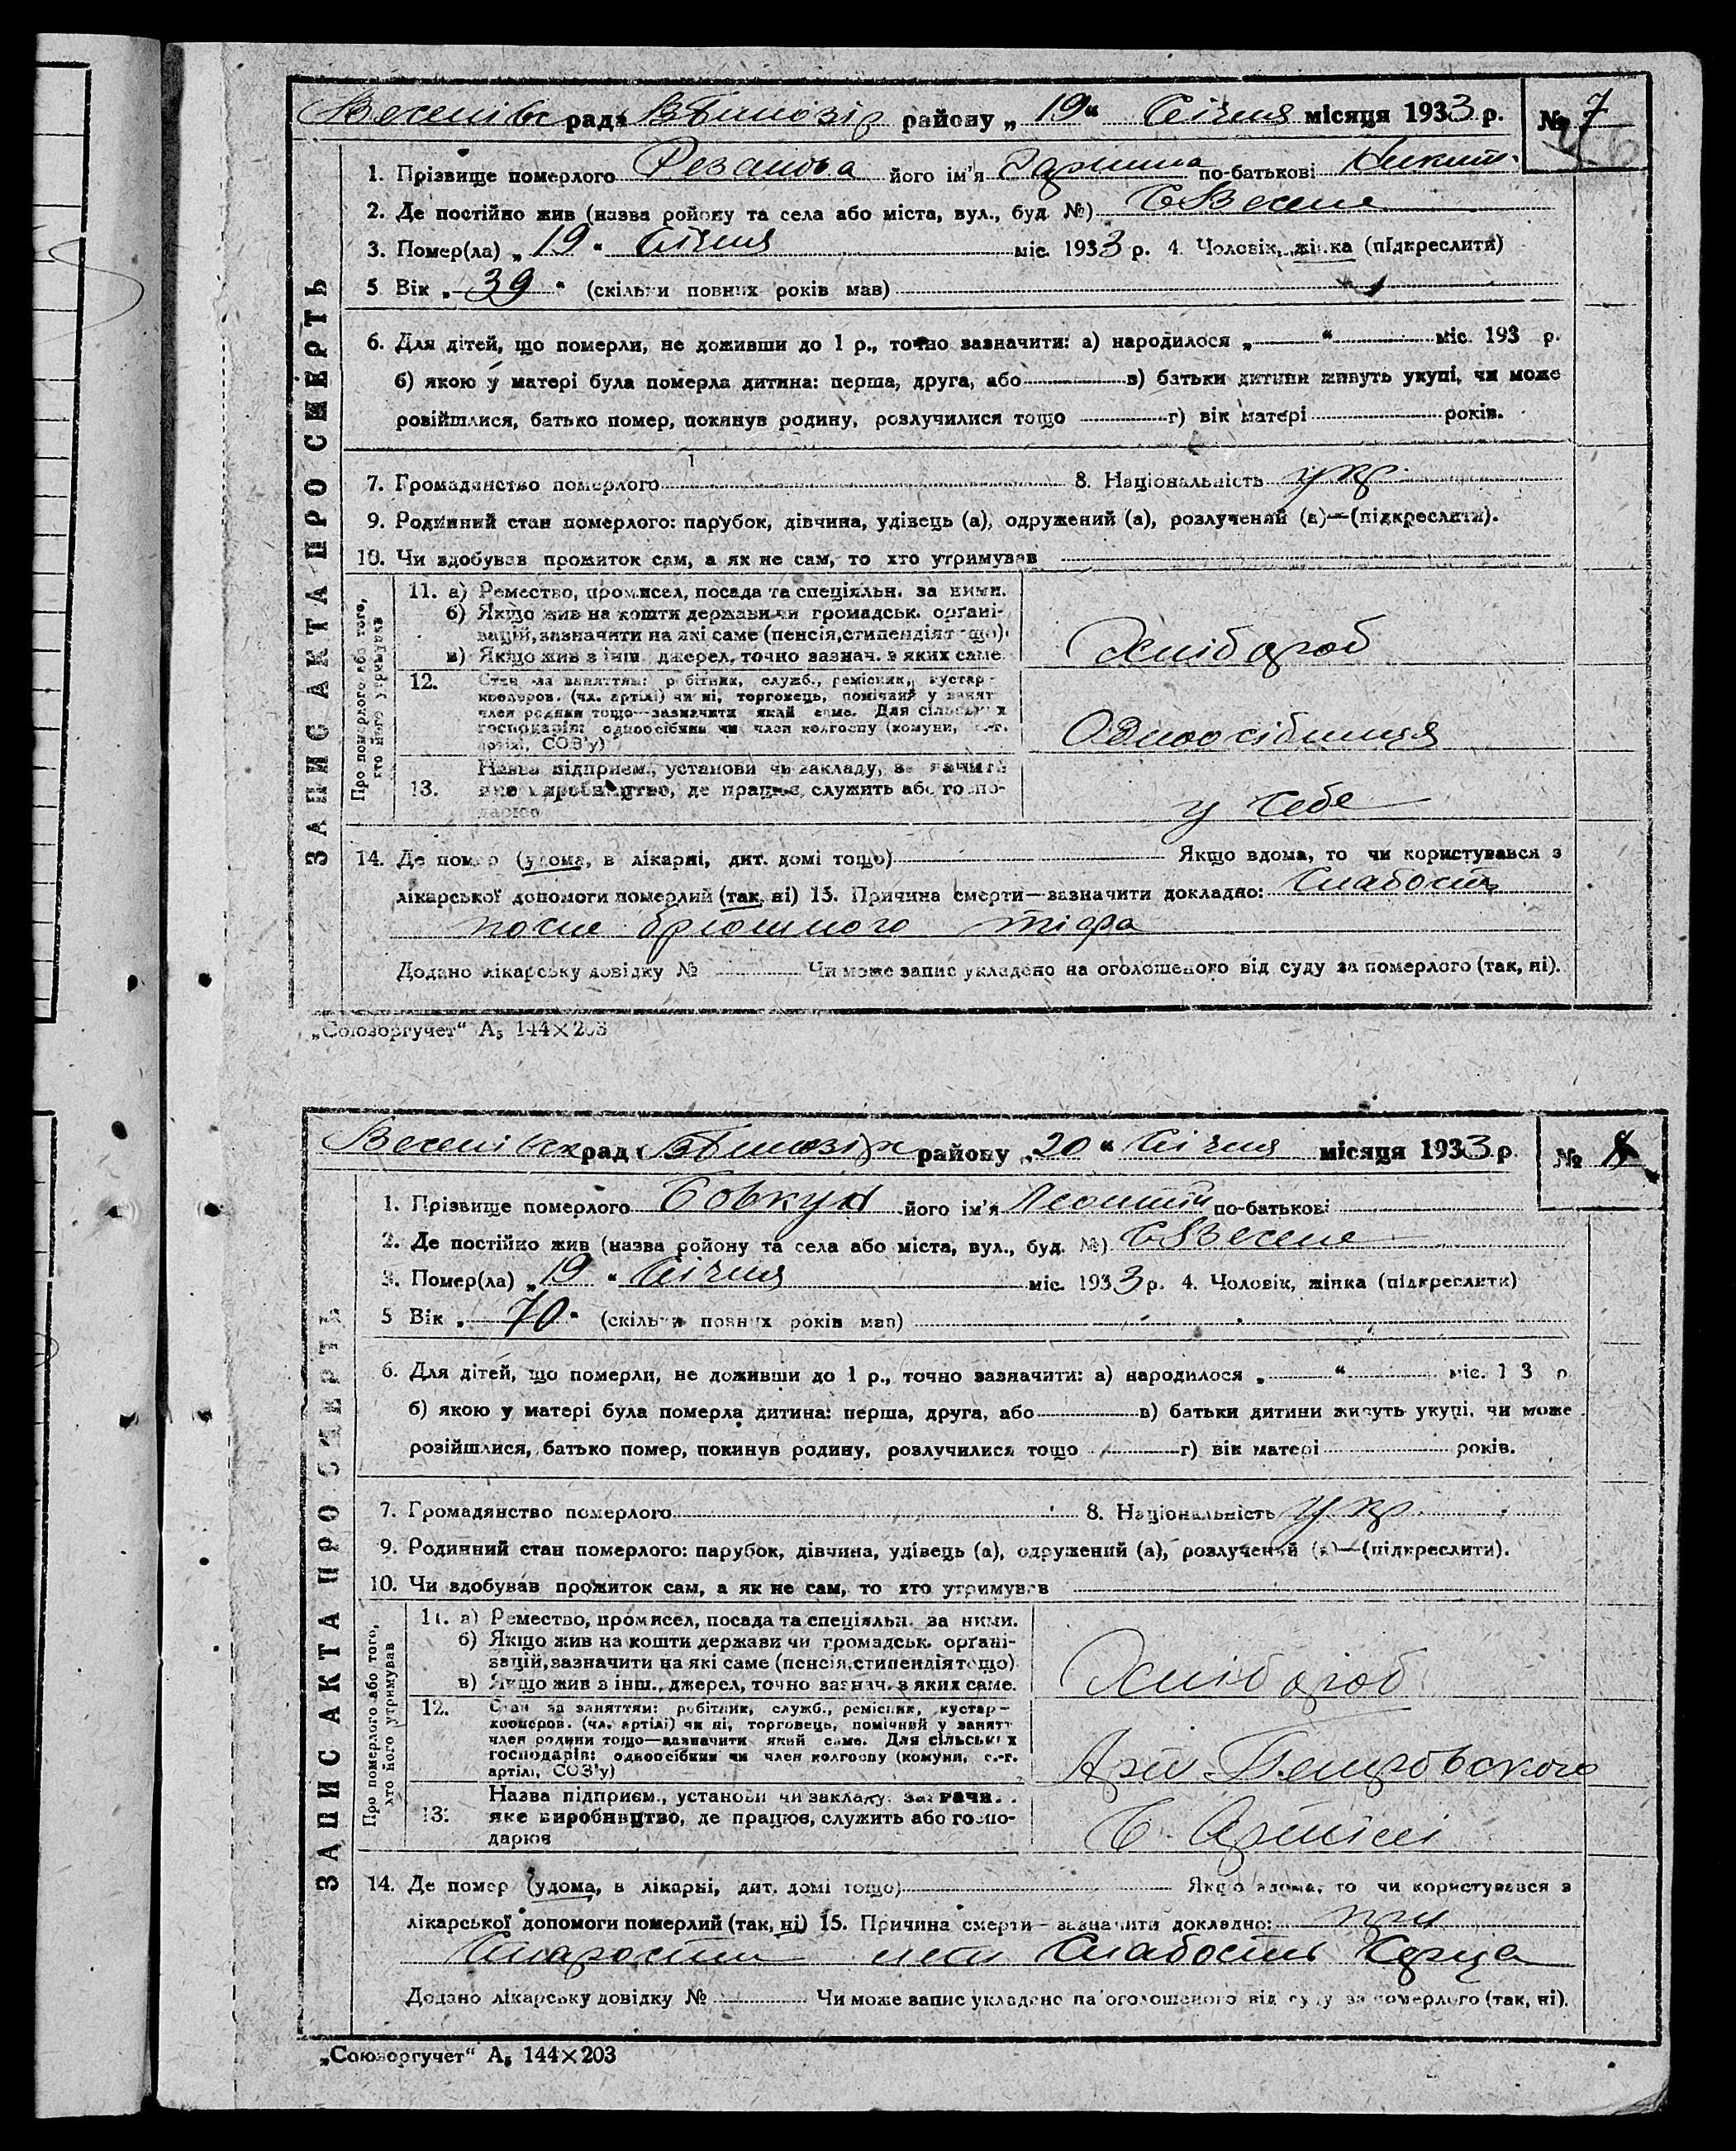 Веселівс рада В Білозір району „19“ Січня місяця 1933 р. № 7
1. Прізвище померлого Резанова його ім'я Ярина по-батькові Никит.
2. Де постійно жив (назва ройону та села або міста, вул., буд. №) С Веселе
3. Помер(ла) „19“ Січня міс. 1933 р. 4. Чоловік, жінка (підкреслити)
5 Вік „39“ (скільки повних років мав)
6. Для дітей, що померли, не доживши до 1 р., точно зазначити: а) народилося „ “ міс. 193 р.
б) якою у матері була померла дитина: перша, друга, або в) батьки дитини живуть укупі, чи може
розійшлися, батько помер, покинув родину, розлучилися тощо г) вік матері років.
7. Громадянство померлого 8. Національність укр.
9. Родинний стан померлого: парубок, дівчина, удівець (а), одружений (а), розлучений (а)—(підкреслити).
10. Чи здобував прожиток сам, а як не сам, то хто утримував
ЗАПИС АКТА ПРО СМЕРТЬ
Про померлого або того, хто його утримував
11. а) Ремество, промисел, посада та спеціяльн. за ними.
б) Якщо жив на кошти держави чи громадськ. органі-
зацій, зазначити на які саме (пенсія, стипендія тощо)
в) Якщо жив з інш. джерел, точно зазнач. з яких саме.
Хлібороб
12. Стан за заняттям: робітник, служб., ремісник, кустар-
кооперов. (чл. артілі) чи ні, торговець, помічний у занят
член родини тощо—зазначити який саме. Для сільських
господарів: одноосібник чи член колгоспу (комуни, с.-г.
артілі, СОЗ'у)
Одноосібниця
Назва підприєм., установи чи закладу, зазначити
13. яке виробництво, де працює, служить або госпо-
дарює
у себе
14. Де помер (удома, в лікарні, дит. домі тощо) Якщо вдома, то чи користувався з
лікарської допомоги померлий (так, ні) 15. Причина смерти—зазначити докладно: Слабость
после брюшного тіфа
Додано лікарську довідку № Чи може запис укладено на оголошеного від суду за померлого (так, ні).
„Союзоргучет“ А₅ 144×203
Веселівск рад В Білозір району „20“ Січня місяця 1933 р № 8
1. Прізвище померлого Бовкун його ім'я Леонтій по-батькові
2. Де постійно жив (назва ройону та села або міста, вул., буд. №) С Веселе
3. Помер(ла) „19“ Січня міс. 1933 р. 4. Чоловік, жінка (підкреслити)
5 Вік „70“ (скільки повних років мав)
6. Для дітей, що померли, не доживши до 1 р., точно зазначити: а) народилося „ “ міс. 1 3 р
б) якою у матері була померла дитина: перша, друга, або в) батьки дитини живуть укупі, чи може
розійшлися, батько помер, покинув родину, розлучилися тощо г) вік матері років.
7. Громадянство померлого 8. Національність укр.
9. Родинний стан померлого: парубок, дівчина, удівець (а), одружений (а), розлучений (а)—(підкреслити).
10. Чи здобував прожиток сам, а як не сам, то хто утримував
ЗАПИС АКТА ПРО СМЕРТЬ
Про померлого або того, хто його утримував
11. а) Ремество, промисел, посада та спеціяльн. за ними.
б) Якщо жив на кошти держави чи громадськ. органі-
зацій, зазначити на які саме (пенсія, стипендія тощо)
в) Якщо жив з інш., джерел, точно зазнач. з яких саме.
Хлібороб
12. Стан за заняттям: робітник, служб., ремісник, кустар-
кооперов. (чл. артілі) чи ні, торговець, помічний у занят
член родини тощо—зазначити який саме. Для сільських
господарів: одноосібник чи член колгоспу (комуни, с.-г.
артілі, СОЗ'у)
Арт Петровского
Назва підприєм., установи чи закладу, зазначи.
13. яке виробництво, де працює, служить або госпо-
дарює
В Артілі
14. Де помер (удома, в лікарні, дит. домі тощо) Якщо вдома, то чи користувався з
лікарської допомоги померлий (так, ні) 15. Причина смерти—зазначити докладно: при
старости лет слабость серца
Додано лікарську довідку № Чи може запис укладено на оголошеного від суду за померлого (так, ні).
„Союзоргучет“ А₅ 144×203